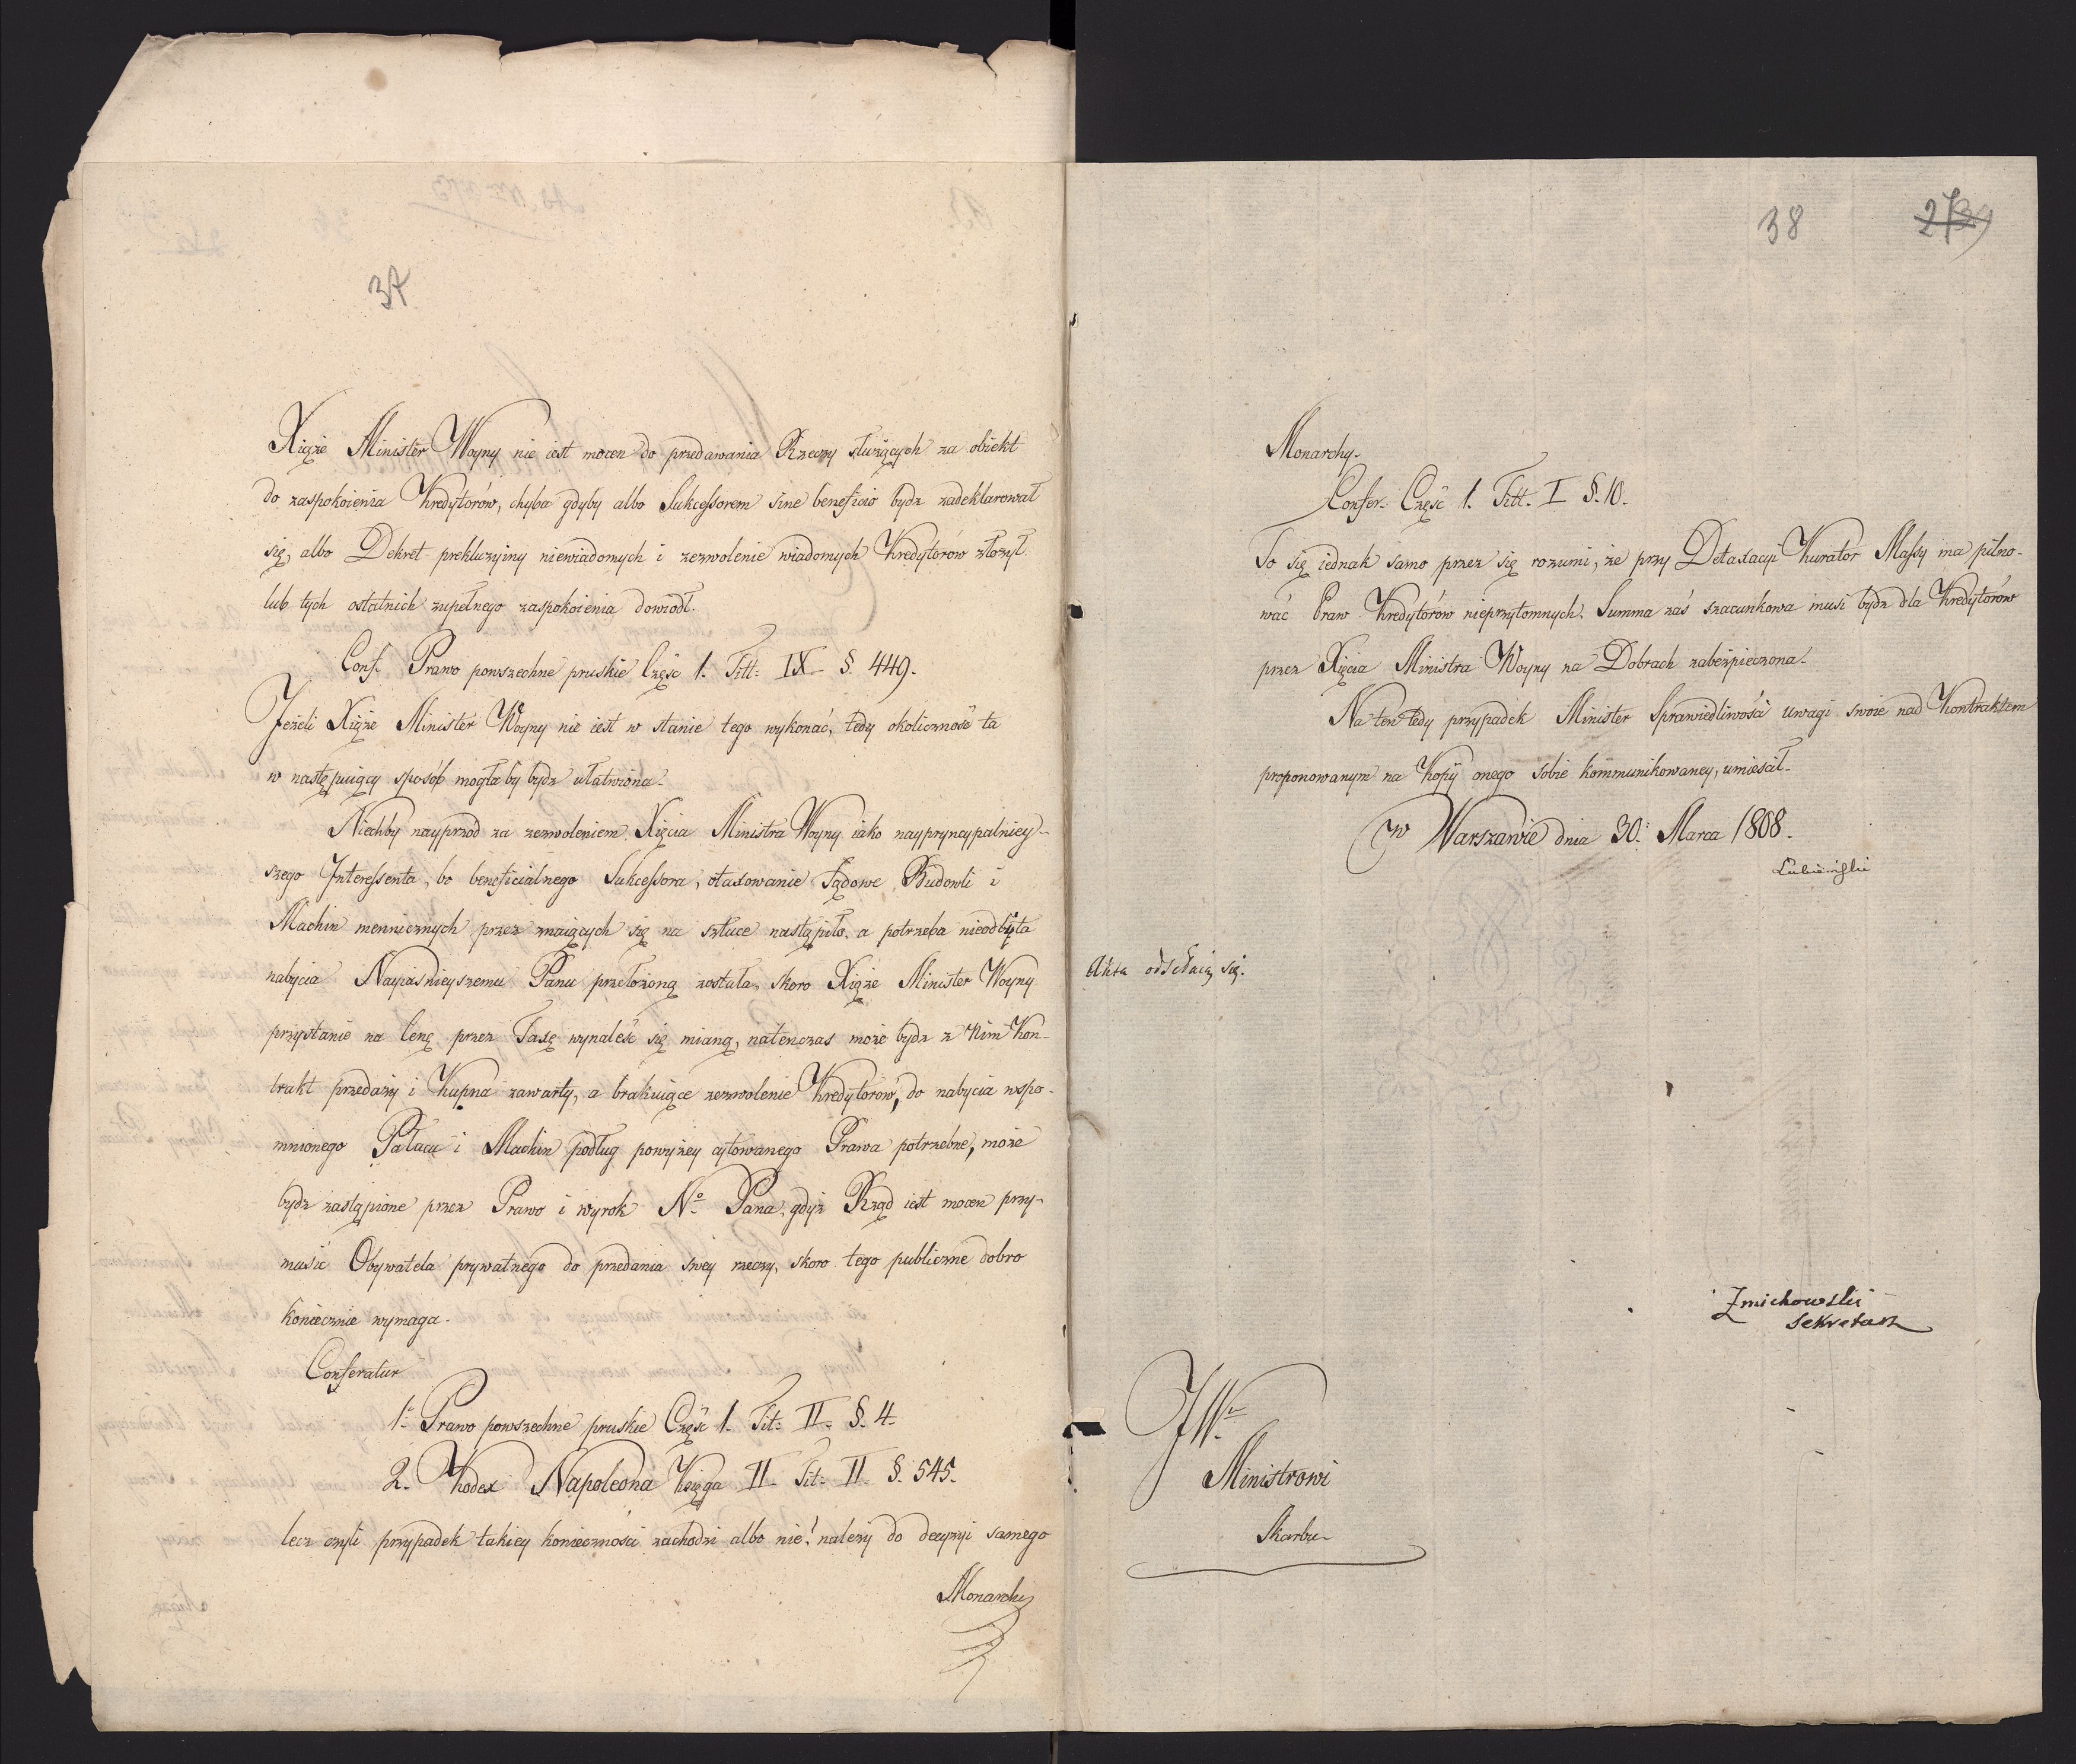 37
Xiąże Minister Woyny nie iest mocen do przedawania Rzeczy służących za obiekt
do zaspokoienia Kredytorów, chyba gdyby albo Sukcessorem sine beneficio bydz zadeklarował
się, albo Dekret prekluzyiny niewiadomych i zezwolenie wiadomych Kredytorów złożył.
lub tych ostatnich zupełnego zaspokoienia dowiodł.
Conf. Prawo powszechne pruskie Częśc 1. Titt: IX. §. 449.
Jeżeli Xiąże Minister Woyny nie iest w stanie tego wykonać, tedy okoliczność ta
w następuiący sposób mogłaby bydz ułatwiona.
Niechby nayprzod za zezwoleniem Xięcia Ministra Woyny iako naypryncypalniey-
szego Interessenta, bo beneficialnego Sukcessora, otaxowanie Sądowe Budowli i
Machin mennicznych przez znaiących się na sztuce nastąpiło. a potrzeba nieodbita
nabycia Nayiasnieyszemu Panu przełożoną została, skoro Xiąże Minister Woyny
przystanie na Cenę przez Taxę wynaleśc się mianą, natenczas może bydz z Nim Kon-
trakt przedaży i Kupna zawarty, a brakuiące zezwolenie Kredytorów, do nabycia wspo-
mnionego Pałacu i Machin podług powyżey cytowanego Prawa potrzebne, może
bydz zastąpione przez Prawo i wyrok N° Pana, gdyż Rząd iest mocen przy-
musić Obywatela prywatnego do przedania swey rzeczy, skoro tego publiczne dobro
koniecznie wymaga.
Conferatur
1. Prawo powszechne pruskie Częśc 1. Tit: II. §. 4.
2. Kodex Napoleona Księga II. Tit: II. §. 545.
lecz czyli przypadek takiey konieczności zachodzi albo nie? należy do decyzyi samego
Monarchy
38
Monarchy.
Confer. Częśc 1. Titt. I §. 10.
To się iednak samo przez się rozumi, że przy Detaxacyi Kurator Massy ma pilno-
wać Praw Kredytorów nieprzytomnych. Summa zaś szacunkowa musi bydz dla Kredytorów
przez Xięcia Ministra Woyny na Dobrach zabezpieczona.
Na ten tedy przypadek Minister Sprawiedliwości uwagi swoie nad Kontraktem
proponowanym na Kopij onego sobie kommunikowaney, umieścił.
w Warszawie dnia 30. Marca 1808.
Lubieński
Akta odsełaią się.
Zmichowski
Sekretarz
JW.
Ministrowi
Skarbu